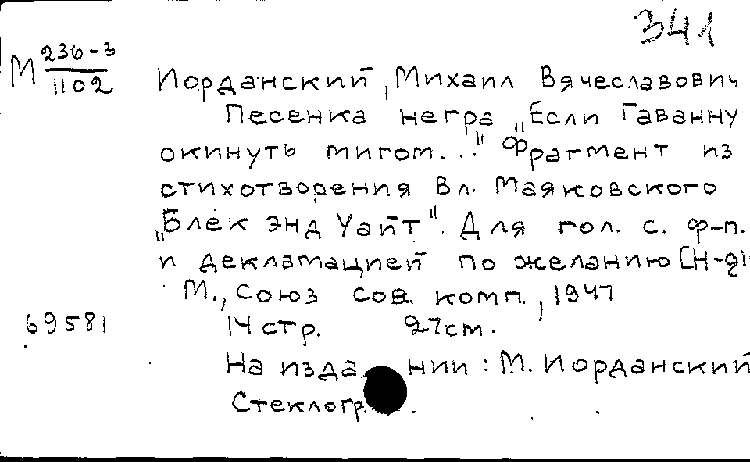 341
М 236-3/1102
Иорданский, Михаил Вячеславович
Песенка негра „Если Гаванну
окинуть мигом..." Фрагмент из
стихотворения Вл. Маяковского
„Блек энд Уайт". Для гол. с. ф-п.
и декламацией по желанию [Н-д]
М., Союз сов. комп., 1947
69581 14 стр. 27 см.
На изда нии: М. Иорданский
Стеклогр.